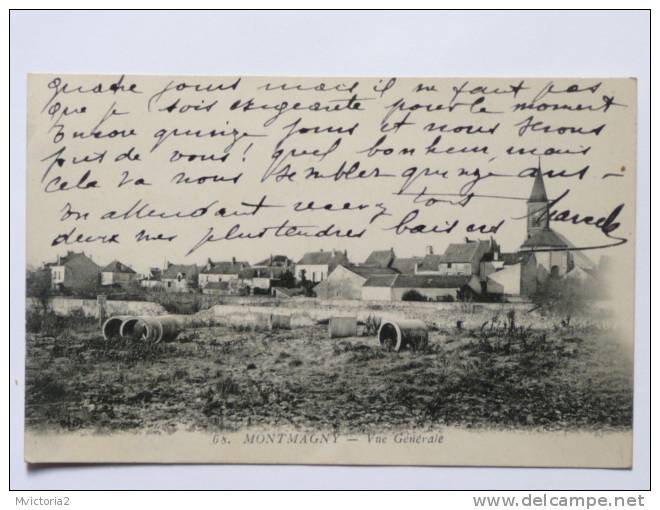 quatre jours mais il ne faut pas
que je sois exigeante pour le moment
Encore quinze jours et nous serons
près de vous! quel bonheur, mais
cela va nous sembler quinze ans –
En attendant recevez tous
deux mes plus tendres baisers Marcelle
68. MONTMAGNY – Vue Générale
Mvictoria2
www.delcampe.net